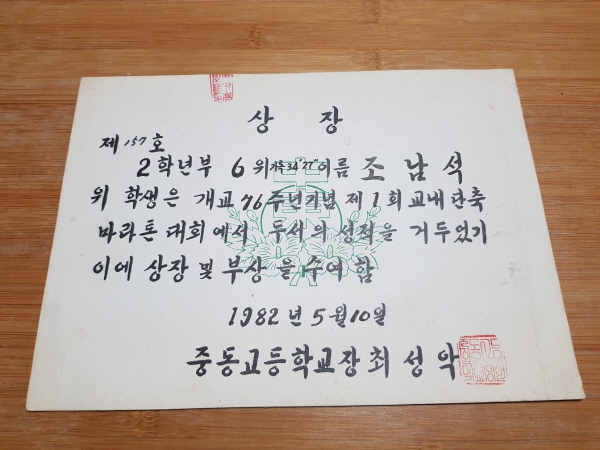 상 장
제 157 호
2학년부 6위 기록 34'27" 이름 조남석
위 학생은 개교 76주년기념 제1회 교내 단축
마라톤 대회에서 두서의 성적을 거두었기
이에 상장 및 부상을 수여함
1982년 5월 10일
중동고등학교장 최성악